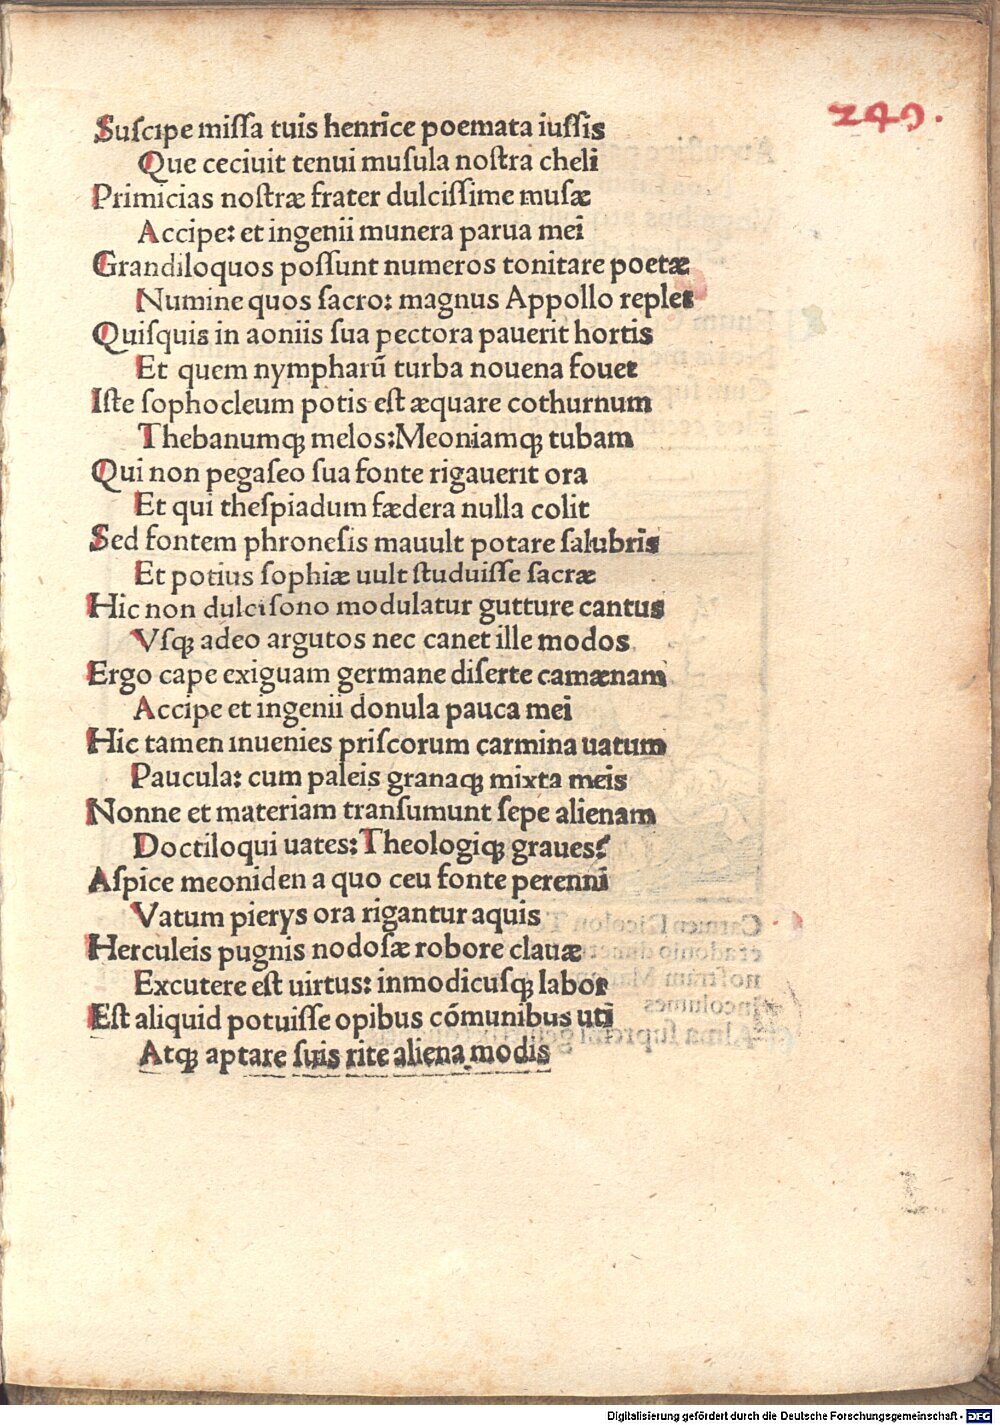 249.
Suſcipe miſſa tuis henrice poemata iuſſis
Que ceciuit tenui muſula noſtra cheli
Primicias noſtræ frater dulciſſime muſæ
Accipe: et ingenii munera parua mei
Grandiloquos poſſunt numeros tonitare poetæ
Numine quos ſacro: magnus Appollo replet
Quiſquis in aoniis ſua pectora pauerit hortis
Et quem nympharū turba nouena fouet
Iſte ſophocleum potis eſt æquare cothurnum
Thebanumqꝫ melos: Meoniamqꝫ tubam
Qui non pegaſeo ſua fonte rigauerit ora
Et qui theſpiadum fædera nulla colit
Sed fontem phroneſis mauult potare ſalubris
Et potius ſophiæ uult ſtuduiſſe ſacræ
Hic non dulciſono modulatur gutture cantus
Vſqꝫ adeo argutos nec canet ille modos
Ergo cape exiguam germane diſerte camænam
Accipe et ingenii donula pauca mei
Hic tamen inuenies priſcorum carmina uatum
Paucula: cum paleis granaqꝫ mixta meis
Nonne et materiam tranſumunt ſepe alienam
Doctiloqui uates: Theologiqꝫ graues?
Aſpice meoniden a quo ceu fonte perenni
Vatum pierys ora rigantur aquis
Herculeis pugnis nodoſæ robore clauæ
Excutere eſt uirtus: inmodicuſqꝫ labor
Eſt aliquid potuiſſe opibus cómunibus uti
Atqꝫ aptare ſuis rite aliena modis
Digitalisierung gefördert durch die Deutsche Forschungsgemeinschaft - DFG